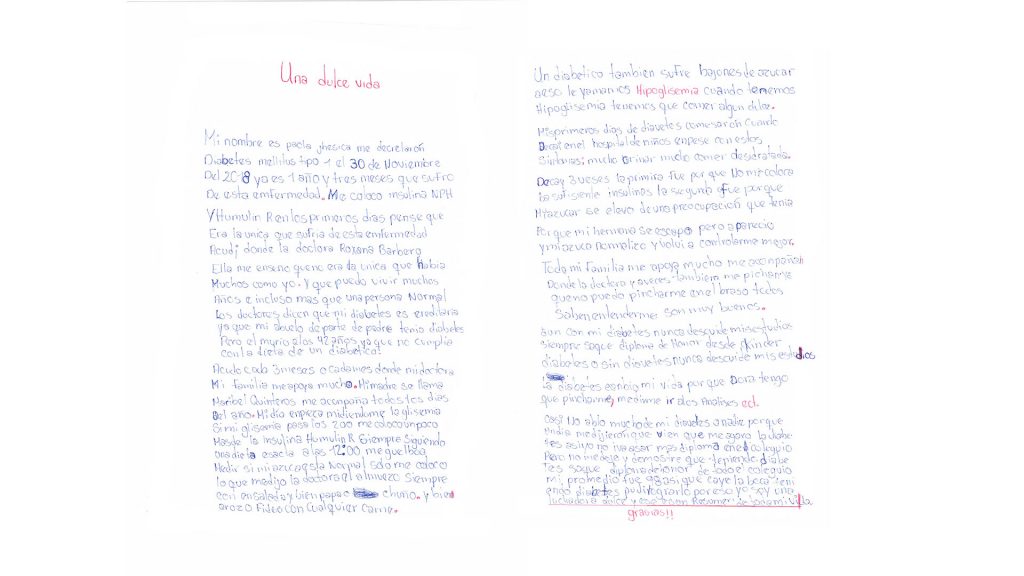 Una dulce vida
Mi nombre es paola jhesica me decretaron
Diabetes mellitus tipo 1 el 30 de Noviembre
Del 2018 ya es 1 año y tres meses que sufro
De esta emfermedad. Me coloco insulina NPH
Y Humulin R en los primeros dias pense que
Era la unica que sufria de esta emfermedad
Acudi donde la doctora Roxana Barbero
Ella me enseno que no era la unica que habia
Muchos como yo. Y que puedo vivir muchos
Años e incluso mas que una persona Normal
Los doctores dicen que mi diabetes es ereditaria
ya que mi abuelo de parte de padre tenio diabetes
Pero el murio a los 42 años ya que no cumplia
con la dieta de un diabetico.
Acudo cada 3 meses o cada mes donde mi doctora
Mi familia me apoya mucho. Mi madre se llama
Maribel Quinteros me acompaña todos los dias
Del año. Mi dia enpieza midiendome la glisemia
Si mi glisemia pasa los 200 me coloco un poco
Mas de la insulina Humulin R Siempre Siguiendo
Una dieta esacta a las 12:00 me
Medir si mi azucar esta Normal solo me coloco
lo que medijo la doctora el almuerzo Siempre
con ensalada y bien papa o chuño. y bien
arozo Fideo con Cualquier carne.
Un diabetico tambien sufre bajones de azucar
a eso le yamamos Hipoglisemia cuando tenemos
Hipoglisemia tenemos que comer algun dulce.
Mis primeros dias de diavetes comesaron Cuando
Decai en el hospital de niños enpese con estos
Sintomas: mucho orinar mucho comer desidratada.
Decay 3 veses la primira fue por que No me coloca
La sufisiente insulina la segunda fue por que
Mi azucar se elevo de una preocupación que tenia
Porque mi hermana se escapo pero aparecio
y mi azucar normalico y volvi a controlarme mejor.
Toda mi familia me apoya mucho me acompañan
Donde la doctora y aveces tambien me pichan ya
que no puedo pincharme en el braso todos
Saben entenderme son muy buenos.
aun con mi diabetes nunca descuide mis estudios
siempre saque diploma de Honor desde Kinder
diabetes o sin diavetes nunca descuide mis estudios
La diabetes cambio mi vida por que aora tengo
que pincharme, medirme ir a los Analises ect.
Casi No ablo mucho de mi diabetes a nadie porque
un dia me dijieron que vien que me agaro la diabe
tes asi yo no iva asar mas diploma en el colequio
Pero no me deje y demostre que teniendo diabe
tes saque diploma de honor de todo el colequio
mi promedio fue asi que caye la boca teni
endo diabetes pudi lograrlo por eso yo soy una
luchadora dulce y ese es un Resumen de toda mi vida
gracias!!